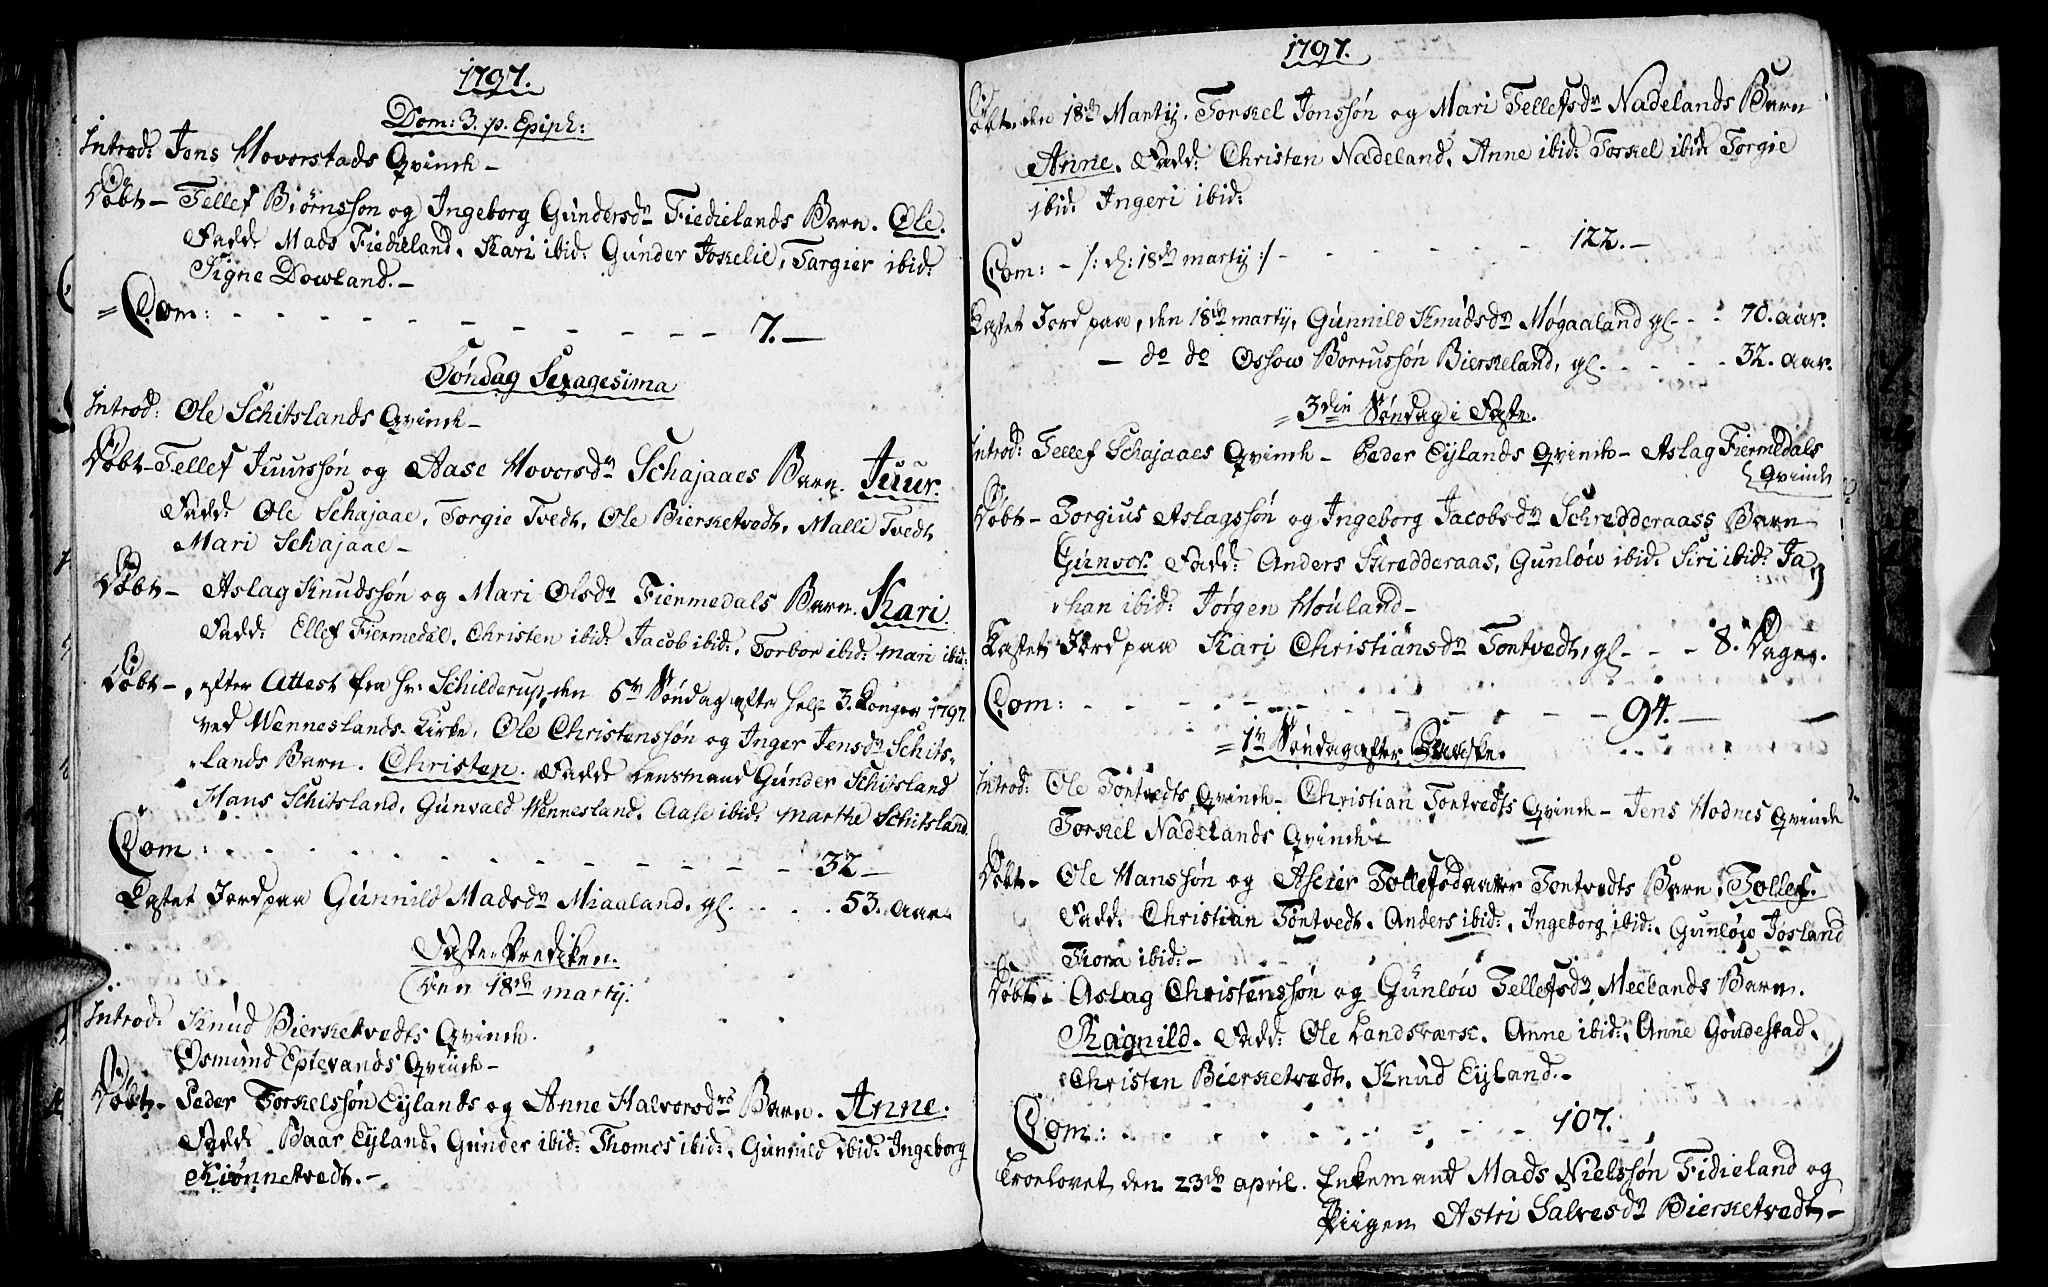 1797.
Dom: 3. p. Epiph:
Introd: Jens Hovorstads Qvinde –
Døbt – Tellef Biørnssøn og Ingeborg Gundersdr Fiedielands Barn. Ole.
Fadd: Mads Fiedieland. Kari ibid: Gunder Joskelie, Targier ibid:
Signe Dowland. –
= Com: - - - - - - - - - - 7. –
Søndag Sexagesima
Introd: Ole Schitslands Qvinde –
Døbt – Tellef Juurssøn og Aase Hovorsdr Schajaaes Barn. Juur.
Fadd: Ole Schajaae, Torgie Tvedt, Ole Bierketvedt, Malli Tvedt
Mari Schajaae –
Døbt – Aslag Knudssøn og Mari Olsdr Fiermedals Barn. Kari.
Fadd: Ellef Fiermedal. Christen ibid: Jacob ibid:. Torbor ibid: Mari ibid:
Døbt –, efter Attest fra hr: Schilderup, den 5te Søndag efter hel: 3. Konger 1797.
ved Wenneslands Kirke, Ole Christenssøn og Inger Jensdr Schits-
lands Barn. Christen. Fadd: Lensmand Gunder Schitsland
Hans Schitsland, Gunvald Wennesland. Aase ibid: Marthe Schitsland.
Com: - - - - - - - - - - 32 –
Kastet Jord paa Gunnild Madsdr Miaaland. gl. - - - 53. aar.
Faste Prediken.
Den 18de martij.
Introd: Knud Bierketvedts Qvinde.
Osmund Eptevands Qvinde –
Døbt – Peder Torkelssøn Eylands og Anne Halvorsdrs Barn. Anne.
Fadd: Baar Eyland, Gunder ibid: Thomes ibid:. Gunnild ibid: Ingeborg
Kiønnetvedt. –
1797.
Døbt. den 18de Martij. Torkel Jonssøn og Mari Tellefsdr Nadelands Barn
Anne. Fadd: Christen Nadeland. Anne ibid: Torkel ibid: Torgie
ibid: Ingeri ibid:
Com: - /: d: 18de martij :/ - - - - - - 122. –
Kastet Jord paa, den 18de martij, Gunnild Knudsdr Møgaaland gl - - 70. aar.
– do do Ossow Borrussøn Bierkeland, gl. - - - - 32. aar.
= 3die Søndag i Faste.
Introd: Tellef Schajaaes Qvinde – Peder Eylands Qvinde – Aslag Fiermedals
Qvinde
Døbt – Torgius Aslagssøn og Ingeborg Jacobsdr Schredderaass Barn
Gunvor. Fadd: Anders Skredderaas, Gunløw ibid: Siri ibid: Jo-
han ibid: Jørgen Houland –
Kastet Jord paa Kari Christiansdr Tontvedt, gl - - - 8. Dage.
Com: - - - - - - - - - - 94. –
= 1te Søndag efter Paaske.
Introd: Ole Tontvedts Qvinde – Christian Tontvedts Qvinde – Jens Hodnes Qvinde
Torkel Nadelands Qvinde –
Døbt – Ole Hanssøn og Asgier Tollefsdaatter Tontvedts Barn, Tollef.
Fadd: Christian Tontvedt. Anders ibid:. Ingeborg ibid:. Gunløw Josland
Tiora ibid: –
Døbt – Aslag Christenssøn og Gunløw Tellefsdr Meelands Barn.
Ragnild. Fadd: Ole Landsværk. Anne ibid:. Anne Goudestad.
Christen Bierketvedt. Knud Eyland. –
Com: - - - - - - - - - 107.
Troelovet den 23de april. Enkemand Mads Nielssøn Fidieland og
Piigen Astri Salvesdr Bierketvedt –